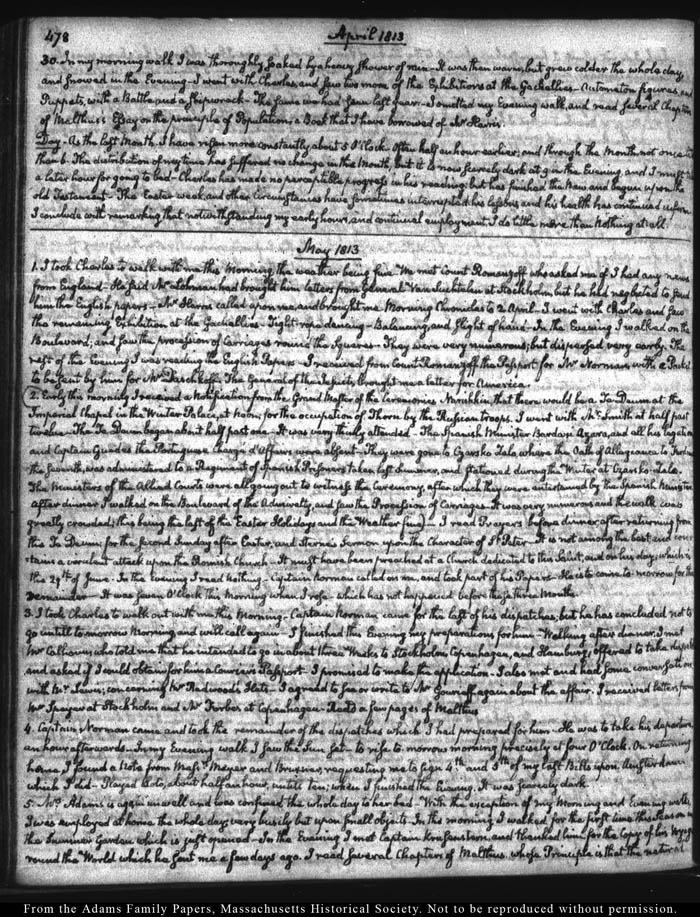 478
April 1813
30. In my morning walk I was thoroughly soaked by a heavy shower of rain - It was then warm, but grew colder the whole day,
and snowed in the Evening - I went with Charles, and saw two more of the Exhibitions at the Gachellies - Automaton figures, and
Puppets, with a Balthazar's Shipwreck - The same we had seen last year - I omitted my Evening walk, and read several Chapters
of Malthus's Essay on the principle of Population, a Book that I have borrowed of Mr Harris.
Day - As the last Month. I have risen more constantly about 5 O'Clock. Often half an hour earlier, and through the Month not once later
than 6. The distribution of my time has suffered no change in this Month, but it is now scarcely dark at 9 in the Evening, and I must take
a later hour for going to bed - Charles has made no perceptible progress in his reading; but has finished the New and begun upon the
old Testament - The Easter week, and other circumstances have sometimes interrupted his lessons and his health has continued
I conclude with remarking that notwithstanding my early hours, and continual employment I do little more than Nothing at all.
May 1813
1. I took Charles to walk with me this Morning, the weather being fine. We met Count Romanzoff who asked me if I had any news
from England. He said Mr Lohman had brought him letters from General Van Suchtelen at Stockholm, but he had neglected to send
him the English papers - Mr Harris called upon me, and brought me Morning Chronicles to 2 April - I went with Charles and saw
the remaining Exhibition at the Gachellies - Tight rope dancing - Balancing, and slight of hand - In the Evening I walked on the
Boulevard; and saw the procession of Carriages round the Squares - They were very numerous; but dispersed very early. The
rest of the Evening I was reading the English Papers - I received from Count Romanzoff the Passport for Mr Norman, with a Packet
to be sent by him for Mr Daschkoff - The General of the Jesuits, brought me a letter for America.
2. Early this morning I received a Notification from the Grand Master of the Ceremonies Narishkin, that there would be a Te-Deum at the
Imperial Chapel in the Winter Palace, at Noon; for the occupation of Thorn by the Russian troops. I went with Mr Smith at half past
twelve - The Te Deum began about half past one - It was very thinly attended - The Spanish Minister Bardaxi Azara, and all his legation
and Captain Guedes the Portuguese Chargé d'Affaires were absent - They were gone to Czarsko Zelo, where the Oath of Allegiance to Ferdinand
the Seventh, was administered to a Regiment of Spanish Prisoners taken last Summer, and stationed during the Winter at Czarsko-Zelo.
The Ministers of the Allied Courts were all going out to witness the Ceremony, after which they were entertained by the Spanish Minister
After dinner I walked on the Boulevard of the Admiralty, and saw the Procession of Carriages - It was very numerous and the walk was
greatly crowded; this being the last of the Easter Holidays and the Weather fine - I read Prayers before dinner, after returning from
the Te Deum, for the second Sunday after Easter, and Sterne's Sermon upon the Character of St Peter - It is not among the best, and con-
tains a virulent attack upon the Romish Church - It must have been preached at a Church dedicated to this Saint, and on his day, which is
the 29th of June - In the Evening I read nothing - Captain Norman called on me, and took part of his Papers - He is to come to-morrow for the
remainder - It was seven O'Clock this Morning when I rose - which has not happened before these three Months.
3. I took Charles to walk out with me this Morning - Captain Norman came for the last of his dispatches; but he has concluded not to
go untill to morrow Morning, and will call again - I finished this Evening my preparations for him - Walking after dinner, I met
Mr Calhoun, who told me that he intended to go in about three Weeks to Stockholm, Copenhagen, and Hamburg; offered to take dispatches
and asked if I could obtain for him a Courier's Passport - I promised to make the application - I also met and had some conversation
with Mr Lewis; concerning Mr Redwood's Slate - I agreed to see or write to Mr Gourieff again about the affair. I received letters from
Mr Speyer at Stockholm and Mr Forbes at Copenhagen - Read a few pages of Malthus.
4. Captain Norman came and took the remainder of the dispatches which I had prepared for him - He was to take his departure
an hour afterwards - In my Evening walk I saw the Sun set - to rise to morrow morning precisely at four O'Clock. On returning
home, I found a Note from Messrs Meyer and Bruxner, requesting me to sign 4th and 5th of my last Bills upon Amsterdam
which I did - Played Loto, about half an hour, untill ten; when I finished the Evening. It was scarcely dark.
5. Mrs Adams is again unwell and was confined the whole day to her bed - With the exception of my Morning and Evening walks,
I was employed at home the whole day, very busily but upon small objects. In the morning I walked for the first time this season in
the Summer Garden, which is just opened - In the Evening I met Captain Krusenstern, and thanked him for the Copy of his Voyage
round the World which he sent me a few days ago. I read several Chapters of Malthus, whose Principle is that the natural
From the Adams Family Papers, Massachusetts Historical Society. Not to be reproduced without permission.